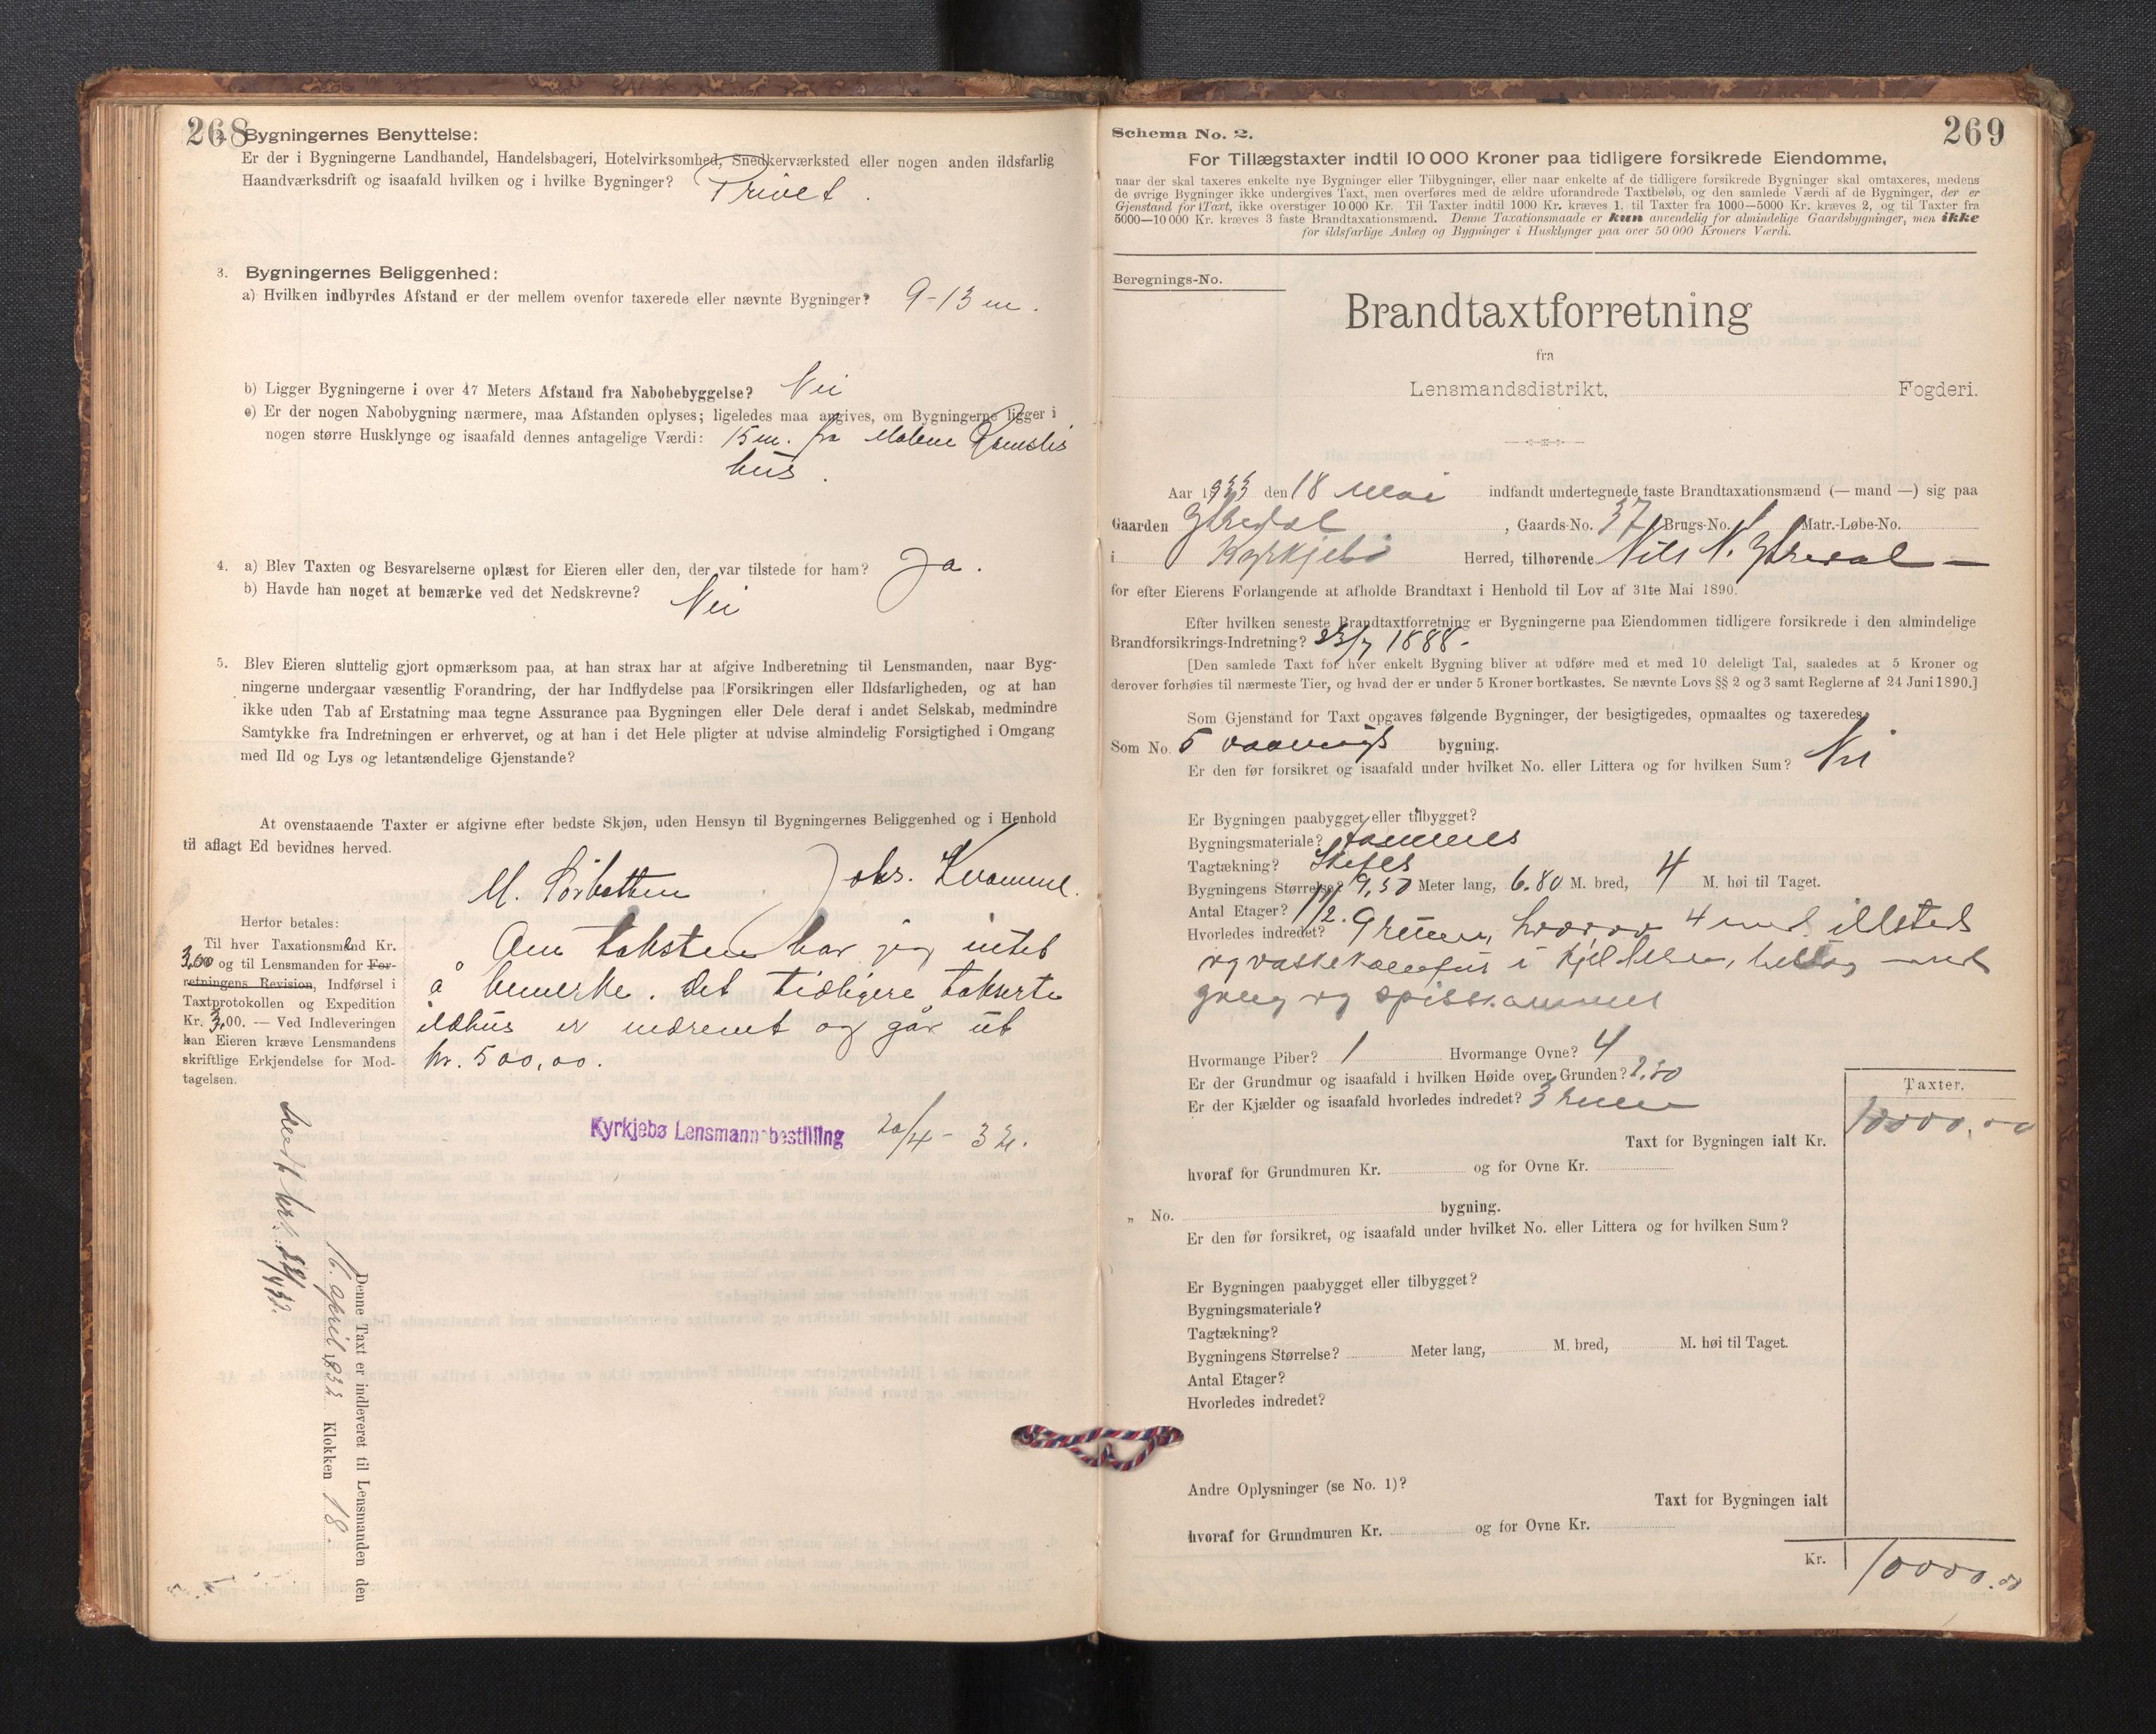 268
2. Bygningernes Benyttelse:
Er der i Bygningerne Landhandel, Handelsbageri, Hotelvirksomhed, Snedkerværksted eller nogen anden ildsfarlig
Haandværksdrift og isaafald hvilken og i hvilke Bygninger? Privet.
3. Bygningernes Beliggenhed:
a) Hvilken indbyrdes Afstand er der mellem ovenfor taxerede eller nævnte Bygninger? 9-13 m.
b) Ligger Bygningerne i over 47 Meters Afstand fra Nabobebyggelse? Nei
c) Er der nogen Nabobygning nærmere, maa Afstanden oplyses; ligeledes maa angives, om Bygningerne ligger i
nogen større Husklynge og isaafald dennes antagelige Værdi: 15 m. fra Malene
hus.
4. a) Blev Taxten og Besvarelserne oplæst for Eieren eller den, der var tilstede for ham? Ja.
b) Havde han noget at bemærke ved det Nedskrevne? Nei
5. Blev Eieren sluttelig gjort opmærksom paa, at han strax har at afgive Indberetning til Lensmanden, naar Byg-
ningerne undergaar væsentlig Forandring, der har Indflydelse paa Forsikringen eller Ildsfarligheden, og at han
ikke uden Tab af Erstatning maa tegne Assurance paa Bygningen eller Dele deraf i andet Selskab, medmindre
Samtykke fra Indretningen er erhvervet, og at han i det Hele pligter at udvise almindelig Forsigtighed i Omgang
med Ild og Lys og letantændelige Gjenstande?
At ovenstaaende Taxter er afgivne efter bedste Skjøn, uden Hensyn til Bygningernes Beliggenhed og i Henhold
til aflagt Ed bevidnes herved.
M. Sørbotten Johs. Kvamme.
Herfor betales:
Til hver Taxationsmand Kr.
3,00 og til Lensmanden for For-
retningens Revision, Indførsel i
Taxtprotokollen og Expedition
Kr. 3,00. — Ved Indleveringen
kan Eieren kræve Lensmandens
skriftlige Erkjendelse for Mod-
tagelsen.
Om taksten har jeg intet
å bemerke. Det tidligere takserte
ildhus er nedrevet og går ut
kr. 500,00.
Kyrkjebø Lensmannsbestilling 20/4 - 32.
Denne Taxt er indleveret til Lensmanden den
16. april 1932 Klokken 18.
269
Schema No. 2.
For Tillægstaxter indtil 10 000 Kroner paa tidligere forsikrede Eiendomme,
naar der skal taxeres enkelte nye Bygninger eller Tilbygninger, eller naar enkelte af de tidligere forsikrede Bygninger skal omtaxeres, medens
de øvrige Bygninger ikke undergives Taxt, men overføres med de ældre uforandrede Taxtbeløb, og den samlede Værdi af de Bygninger, der er
Gjenstand for Taxt, ikke overstiger 10 000 Kr. Til Taxter indtil 1000 Kr. kræves 1, til Taxter fra 1000—5000 Kr. kræves 2, og til Taxter fra
5000—10 000 Kr. kræves 3 faste Brandtaxationsmænd. Denne Taxationsmaade er kun anvendelig for almindelige Gaardsbygninger, men ikke
for ildsfarlige Anlæg og Bygninger i Husklynger paa over 50 000 Kroners Værdi.
Beregnings-No.
Brandtaxtforretning
fra
Lensmandsdistrikt, Fogderi.
Aar 1933 den 18 mai indfandt undertegnede faste Brandtaxationsmænd (— mand —) sig paa
Gaarden Ytredal, Gaards-No. 37 Brugs-No. Matr.-Løbe-No.
i Kyrkjebø Herred, tilhørende Nils N. Ytredal —
for efter Eierens Forlangende at afholde Brandtaxt i Henhold til Lov af 31te Mai 1890.
Efter hvilken seneste Brandtaxtforretning er Bygningerne paa Eiendommen tidligere forsikrede i den almindelige
Brandforsikrings-Indretning? 23/7 1888.
[Den samlede Taxt for hver enkelt Bygning bliver at udføre med et med 10 deleligt Tal, saaledes at 5 Kroner og
derover forhøies til nærmeste Tier, og hvad der er under 5 Kroner bortkastes. Se nævnte Lovs §§ 2 og 3 samt Reglerne af 24 Juni 1890.]
Som Gjenstand for Taxt opgaves følgende Bygninger, der besigtigedes, opmaaltes og taxeredes:
Som No. 5 vaanings bygning.
Er den før forsikret og isaafald under hvilket No. eller Littera og for hvilken Sum? Nei
Er Bygningen paabygget eller tilbygget?
Bygningsmateriale? tømmer
Tagtækning? Skifer
Bygningens Størrelse? 9,50 Meter lang, 6.80 M. bred, 4 M. høi til Taget.
Antal Etager? 1 1/2.
Hvorledes indredet? 9 rum, hvorav 4 med illsted
og i kjelleren, med
gang og spiskammer
Hvormange Piber? 1 Hvormange Ovne? 4
Er der Grundmur og isaafald i hvilken Høide over Grunden? 2.50
Er der Kjælder og isaafald hvorledes indredet? 3 rum
Taxter.
Taxt for Bygningen ialt Kr. 10000.00
hvoraf for Grundmuren Kr. og for Ovne Kr.
„ No. bygning.
Er den før forsikret, og isaafald under hvilket No. eller Littera og for hvilken Sum?
Er Bygningen paabygget eller tilbygget?
Bygningsmateriale?
Tagtækning?
Bygningens Størrelse? Meter lang, M. bred, M. høi til Taget.
Antal Etager?
Hvorledes indredet?
Andre Oplysninger (se No. 1)?
Taxt for Bygningen ialt
hvoraf for Grundmuren Kr. og for Ovne Kr.
Kr. 10000.00